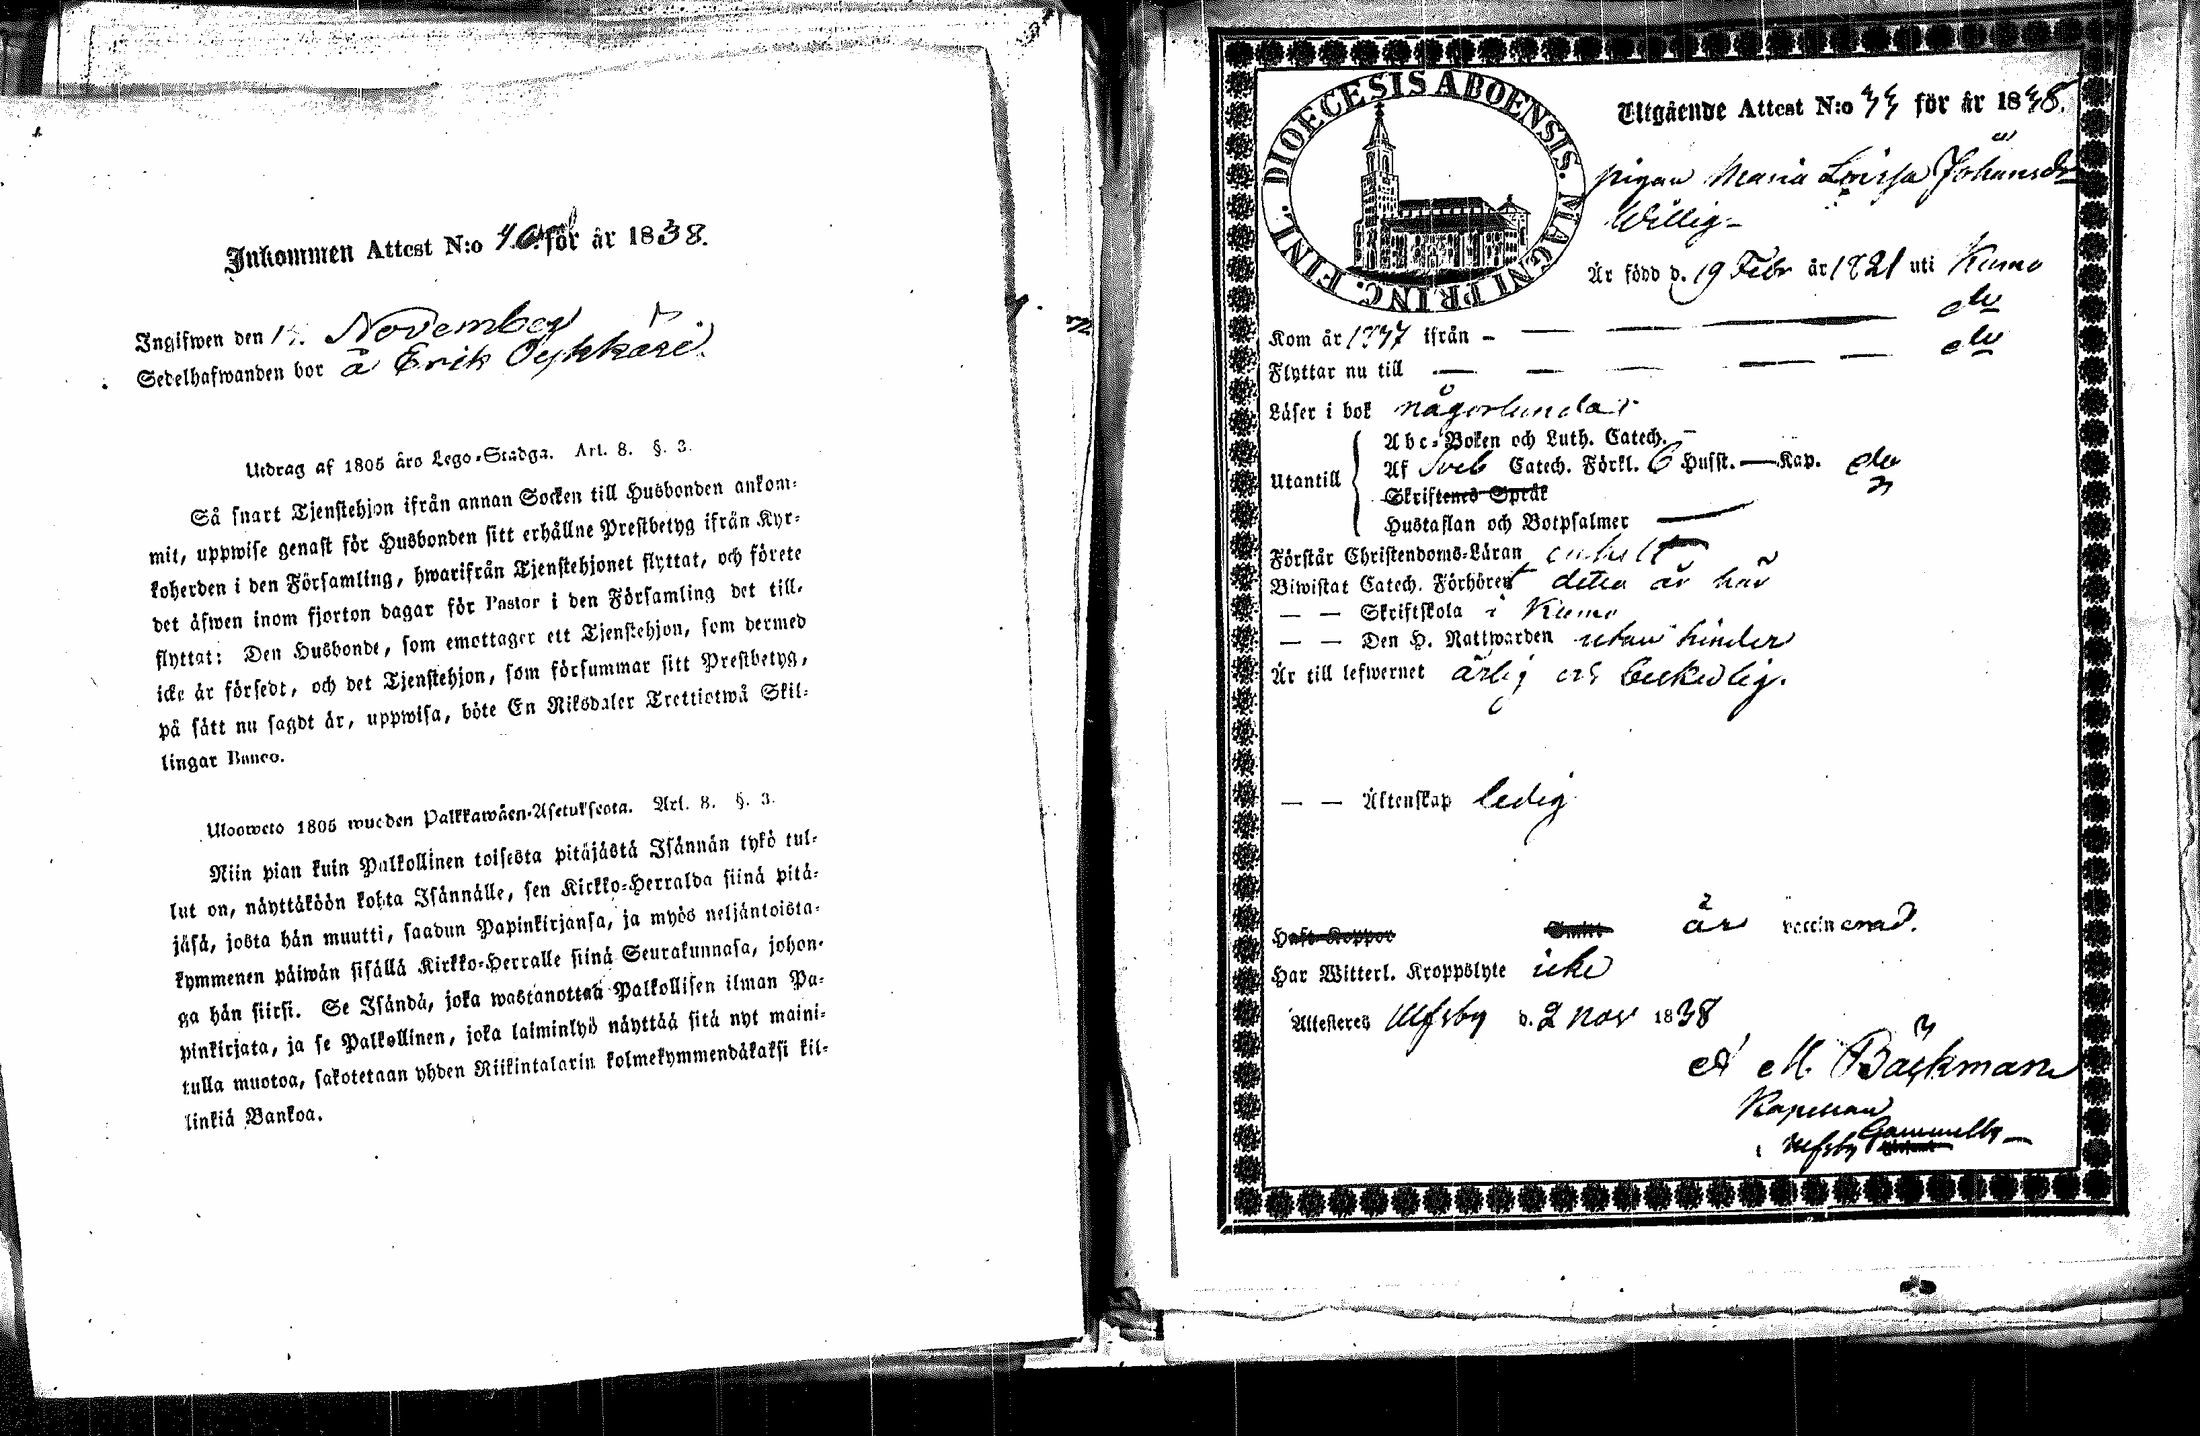 Inkommen Attest N:o för år 1838.
Ingifwen den November
Sedelhafwanden bor å Erik
Utdrag af 1805 års Lego-Stadga. Art. 8. §. 3.
Så snart Tjenstehjon ifrån annan Socken till Husbonden ankom-
mit, uppwise genast för Husbonden sitt erhållne Prestbetyg ifrån Kyr-
koherden i den Församling, hwarifrån Tjenstehjonet flyttat, och förete
det äfwen inom fjorton dagar för Pastor i den Församling det till-
flyttat: Den Husbonde, som emottager ett Tjenstehjon, som dermed
icke är försedt, och det Tjenstehjon, som försummar sitt Prestbetyg,
på sätt nu sagdt är, uppwisa, böte En Riksdaler Trettiotwå Skil-
lingar Banco.
Uloswetó 1805 wuoden Palkkawäen-Asetuksesta. Art. 8. §. 3.
Niin pian kuin Palkollinen toisesta pitäjästä Isännän tykö tul-
lut on, näyttäköön kohta Isännälle, sen Kirkko-Herralda siinä pitä-
jäsä, josta hän muutti, saadun Papinkirjansa, ja myös neljäntoista-
kymmenen päiwän sisällä Kirkko-Herralle siinä Seurakunnasa, johon-
ga hän siirsi. Se Isändä, joka wastanottaa Palkollisen ilman Pa-
pinkirjata, ja se Palkollinen, joka laiminlyö näyttää sitä nyt maini-
tulla muotoa, sakotetaan yhden Riikintalarin kolmekymmendäkaksi kil-
linkiä Bankoa.
DIOECESIS ABOENSIS. MAGNI PRINC. FINL.
Utgående Attest N:o 33 för år 1838.
pigan Maria Lovisa Johansdr
Willig
Är född d. 19 Febr år 1821 uti Kumo
Kom år 1837 ifrån — do
Flyttar nu till — do
Läser i bok någorlunda
Utantill
Abc-Boken och Luth. Catech. —
Af Sveb Catech. Förkl. 6 Husst. — Kap.
Skriftenes Språk
Hustaflan och Botpsalmer —
Förstår Christendoms-Läran enkelt
Biwistat Catech. Förhöret detta år här
— — Skriftskola i Kumo
— — Den H. Nattwarden utan hinder
Är till lefwernet ärlig och beskedlig.
— — Äktenskap ledig
Haft Koppor är vaccinerad.
Har Witterl. Kroppslyte icke
Attesteres Ulfsby d. 2 nov 1838
A M. Bäckman
Kapellan
i Ulfsby Gammelby